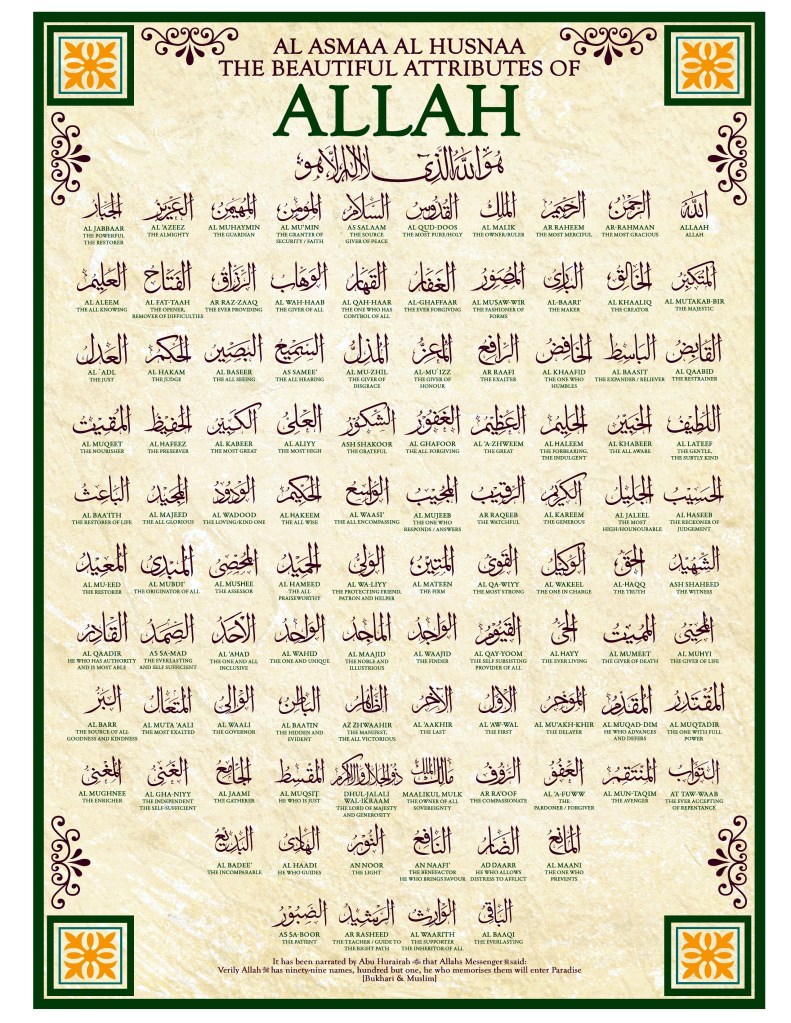 AL ASMAA AL HUSNAA
THE BEAUTIFUL ATTRIBUTES OF
ALLAH
هو الله الذي لا اله الا هو
الله
ALLAAH
ALLAH
الرحمن
AR-RAHMAAN
THE MOST GRACIOUS
الرحيم
AR RAHEEM
THE MOST MERCIFUL
الملك
AL MALIK
THE OWNER/RULER
القدوس
AL QUD-DOOS
THE MOST PURE/HOLY
السلام
AS SALAAM
THE SOURCE
GIVER OF PEACE
المؤمن
AL MU'MIN
THE GRANTER OF
SECURITY / FAITH
المهيمن
AL MUHAYMIN
THE GUARDIAN
العزيز
AL 'AZEEZ
THE ALMIGHTY
الجبار
AL JABBAAR
THE POWERFUL
THE RESTORER
المتكبر
AL MUTAKAB-BIR
THE MAJESTIC
الخالق
AL KHAALIQ
THE CREATOR
البارئ
AL-BAARI'
THE MAKER
المصور
AL MUSAW-WIR
THE FASHIONER OF
FORMS
الغفار
AL-GHAFFAAR
THE EVER FORGIVING
القهار
AL QAH-HAAR
THE ONE WHO HAS
CONTROL OF ALL
الوهاب
AL WAH-HAAB
THE GIVER OF ALL
الرزاق
AR RAZ-ZAAQ
THE EVER PROVIDING
الفتاح
AL FAT-TAAH
THE OPENER,
REMOVER OF DIFFICULTIES
العليم
AL ALEEM
THE ALL KNOWING
القابض
AL QAABID
THE RESTRAINER
الباسط
AL BAASIT
THE EXPANDER / RELIEVER
الخافض
AL KHAAFID
THE ONE WHO
HUMBLES
الرافع
AR RAAFI
THE EXALTER
المعز
AL-MU'IZZ
THE GIVER OF
HONOUR
المذل
AL MU-ZHIL
THE GIVER OF
DISGRACE
السميع
AS SAMEE'
THE ALL HEARING
البصير
AL BASEER
THE ALL SEEING
الحكم
AL HAKAM
THE JUDGE
العدل
AL `ADL
THE JUST
اللطيف
AL LATEEF
THE GENTLE,
THE SUBTLY KIND
الخبير
AL KHABEER
THE ALL AWARE
الحليم
AL HALEEM
THE FORBEARING,
THE INDULGENT
العظيم
AL 'A-ZHWEEM
THE GREAT
الغفور
AL GHAFOOR
THE ALL FORGIVING
الشكور
ASH SHAKOOR
THE GRATEFUL
العلي
AL ALIYY
THE MOST HIGH
الكبير
AL KABEER
THE MOST GREAT
الحفيظ
AL HAFEEZ
THE PRESERVER
المقيت
AL MUQEET
THE NOURISHER
الحسيب
AL HASEEB
THE RECKONER OF
JUDGEMENT
الجليل
AL JALEEL
THE MOST
HIGH/HOUNOURABLE
الكريم
AL KAREEM
THE GENEROUS
الرقيب
AR RAQEEB
THE WATCHFUL
المجيب
AL MUJEEB
THE ONE WHO
RESPONDS / ANSWERS
الواسع
AL WAASI'
THE ALL ENCOMPASSING
الحكيم
AL HAKEEM
THE ALL WISE
الودود
AL WADOOD
THE LOVING/KIND ONE
المجيد
AL MAJEED
THE ALL GLORIOUS
الباعث
AL BAA'ITH
THE RESTORER OF LIFE
الشهيد
ASH SHAHEED
THE WITNESS
الحق
AL-HAQQ
THE TRUTH
الوكيل
AL WAKEEL
THE ONE IN CHARGE
القوي
AL QA-WIYY
THE MOST STRONG
المتين
AL MATEEN
THE FIRM
الولي
AL WA-LIYY
THE PROTECTING FRIEND,
PATRON AND HELPER
الحميد
AL HAMEED
THE ALL
PRAISEWORTHY
المحصي
AL MUSHEE
THE ASSESSOR
المبدئ
AL MUBDI'
THE ORIGINATOR OF ALL
المعيد
AL MU-EED
THE RESTORER
المحيي
AL MUHYI
THE GIVER OF LIFE
المميت
AL MUMEET
THE GIVER OF DEATH
الحي
AL HAYY
THE EVER LIVING
القيوم
AL QAY-YOOM
THE SELF SUBSISTING
PROVIDER OF ALL
الواجد
AL WAAJID
THE FINDER
الماجد
AL MAAJID
THE NOBLE AND
ILLUSTRIOUS
الواحد
AL WAHID
THE ONE AND UNIQUE
الأحد
AL 'AHAD
THE ONE AND ALL
INCLUSIVE
الصمد
AS SA-MAD
THE EVERLASTING
AND SELF SUFFICIENT
القادر
AL QAADIR
HE WHO HAS AUTHORITY
AND IS MOST ABLE
المقتدر
AL MUQTADIR
THE ONE WITH FULL
POWER
المقدم
AL MUQAD-DIM
HE WHO ADVANCES
AND DEFERS
المؤخر
AL MU'AKH-KHIR
THE DELAYER
الأول
AL 'AW-WAL
THE FIRST
الآخر
AL 'AAKHIR
THE LAST
الظاهر
AZ ZHWAAHIR
THE MANIFEST,
THE ALL VICTORIOUS
الباطن
AL BAATIN
THE HIDDEN AND
EVIDENT
الوالي
AL WAALI
THE GOVERNOR
المتعال
AL MUTA 'AALI
THE MOST EXALTED
البر
AL BARR
THE SOURCE OF ALL
GOODNESS AND KINDNESS
التواب
AT TAW-WAAB
THE EVER ACCEPTING
OF REPENTANCE
المنتقم
AL MUN-TAQIM
THE AVENGER
العفو
AL 'A-FUWW
THE
PARDONER / FORGIVER
الرؤوف
AR RA'OOF
THE COMPASSIONATE
مالك الملك
MAALIKUL MULK
THE OWNER OF ALL
SOVEREIGNTY
ذو الجلال والإكرام
DHUL-JALALI
WAL-IKRAAM
THE LORD OF MAJESTY
AND GENEROSITY
المقسط
AL MUQSIT
HE WHO IS JUST
الجامع
AL JAAMI
THE GATHERER
الغني
AL GHA-NIYY
THE INDEPENDENT
THE SELF-SUFFICIENT
المغني
AL MUGHNEE
THE ENRICHER
المانع
AL MAANI
THE ONE WHO
PREVENTS
الضار
AD DAARR
HE WHO ALLOWS
DISTRESS TO AFFLICT
النافع
AN NAAFI'
THE BENEFACTOR
HE WHO BRINGS FAVOUR
النور
AN NOOR
THE LIGHT
الهادي
AL HAADI
HE WHO GUIDES
البديع
AL BADEE'
THE INCOMPARABLE
الباقي
AL BAAQI
THE EVERLASTING
الوارث
AL WAARITH
THE SUPPORTER
THE INHERITOR OF ALL
الرشيد
AR RASHEED
THE TEACHER / GUIDE TO
THE RIGHT PATH
الصبور
AS SA-BOOR
THE PATIENT
It has been narrated by Abu Hurairah that Allahs Messenger ﷺ said:
Verily Allah ﷻ has ninety-nine names, hundred but one, he who memorises them will enter Paradise
[Bukhari & Muslim]